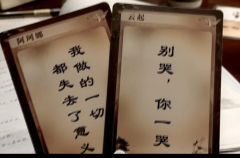 我做的一切
都失去了意义
云起
别哭，你一哭